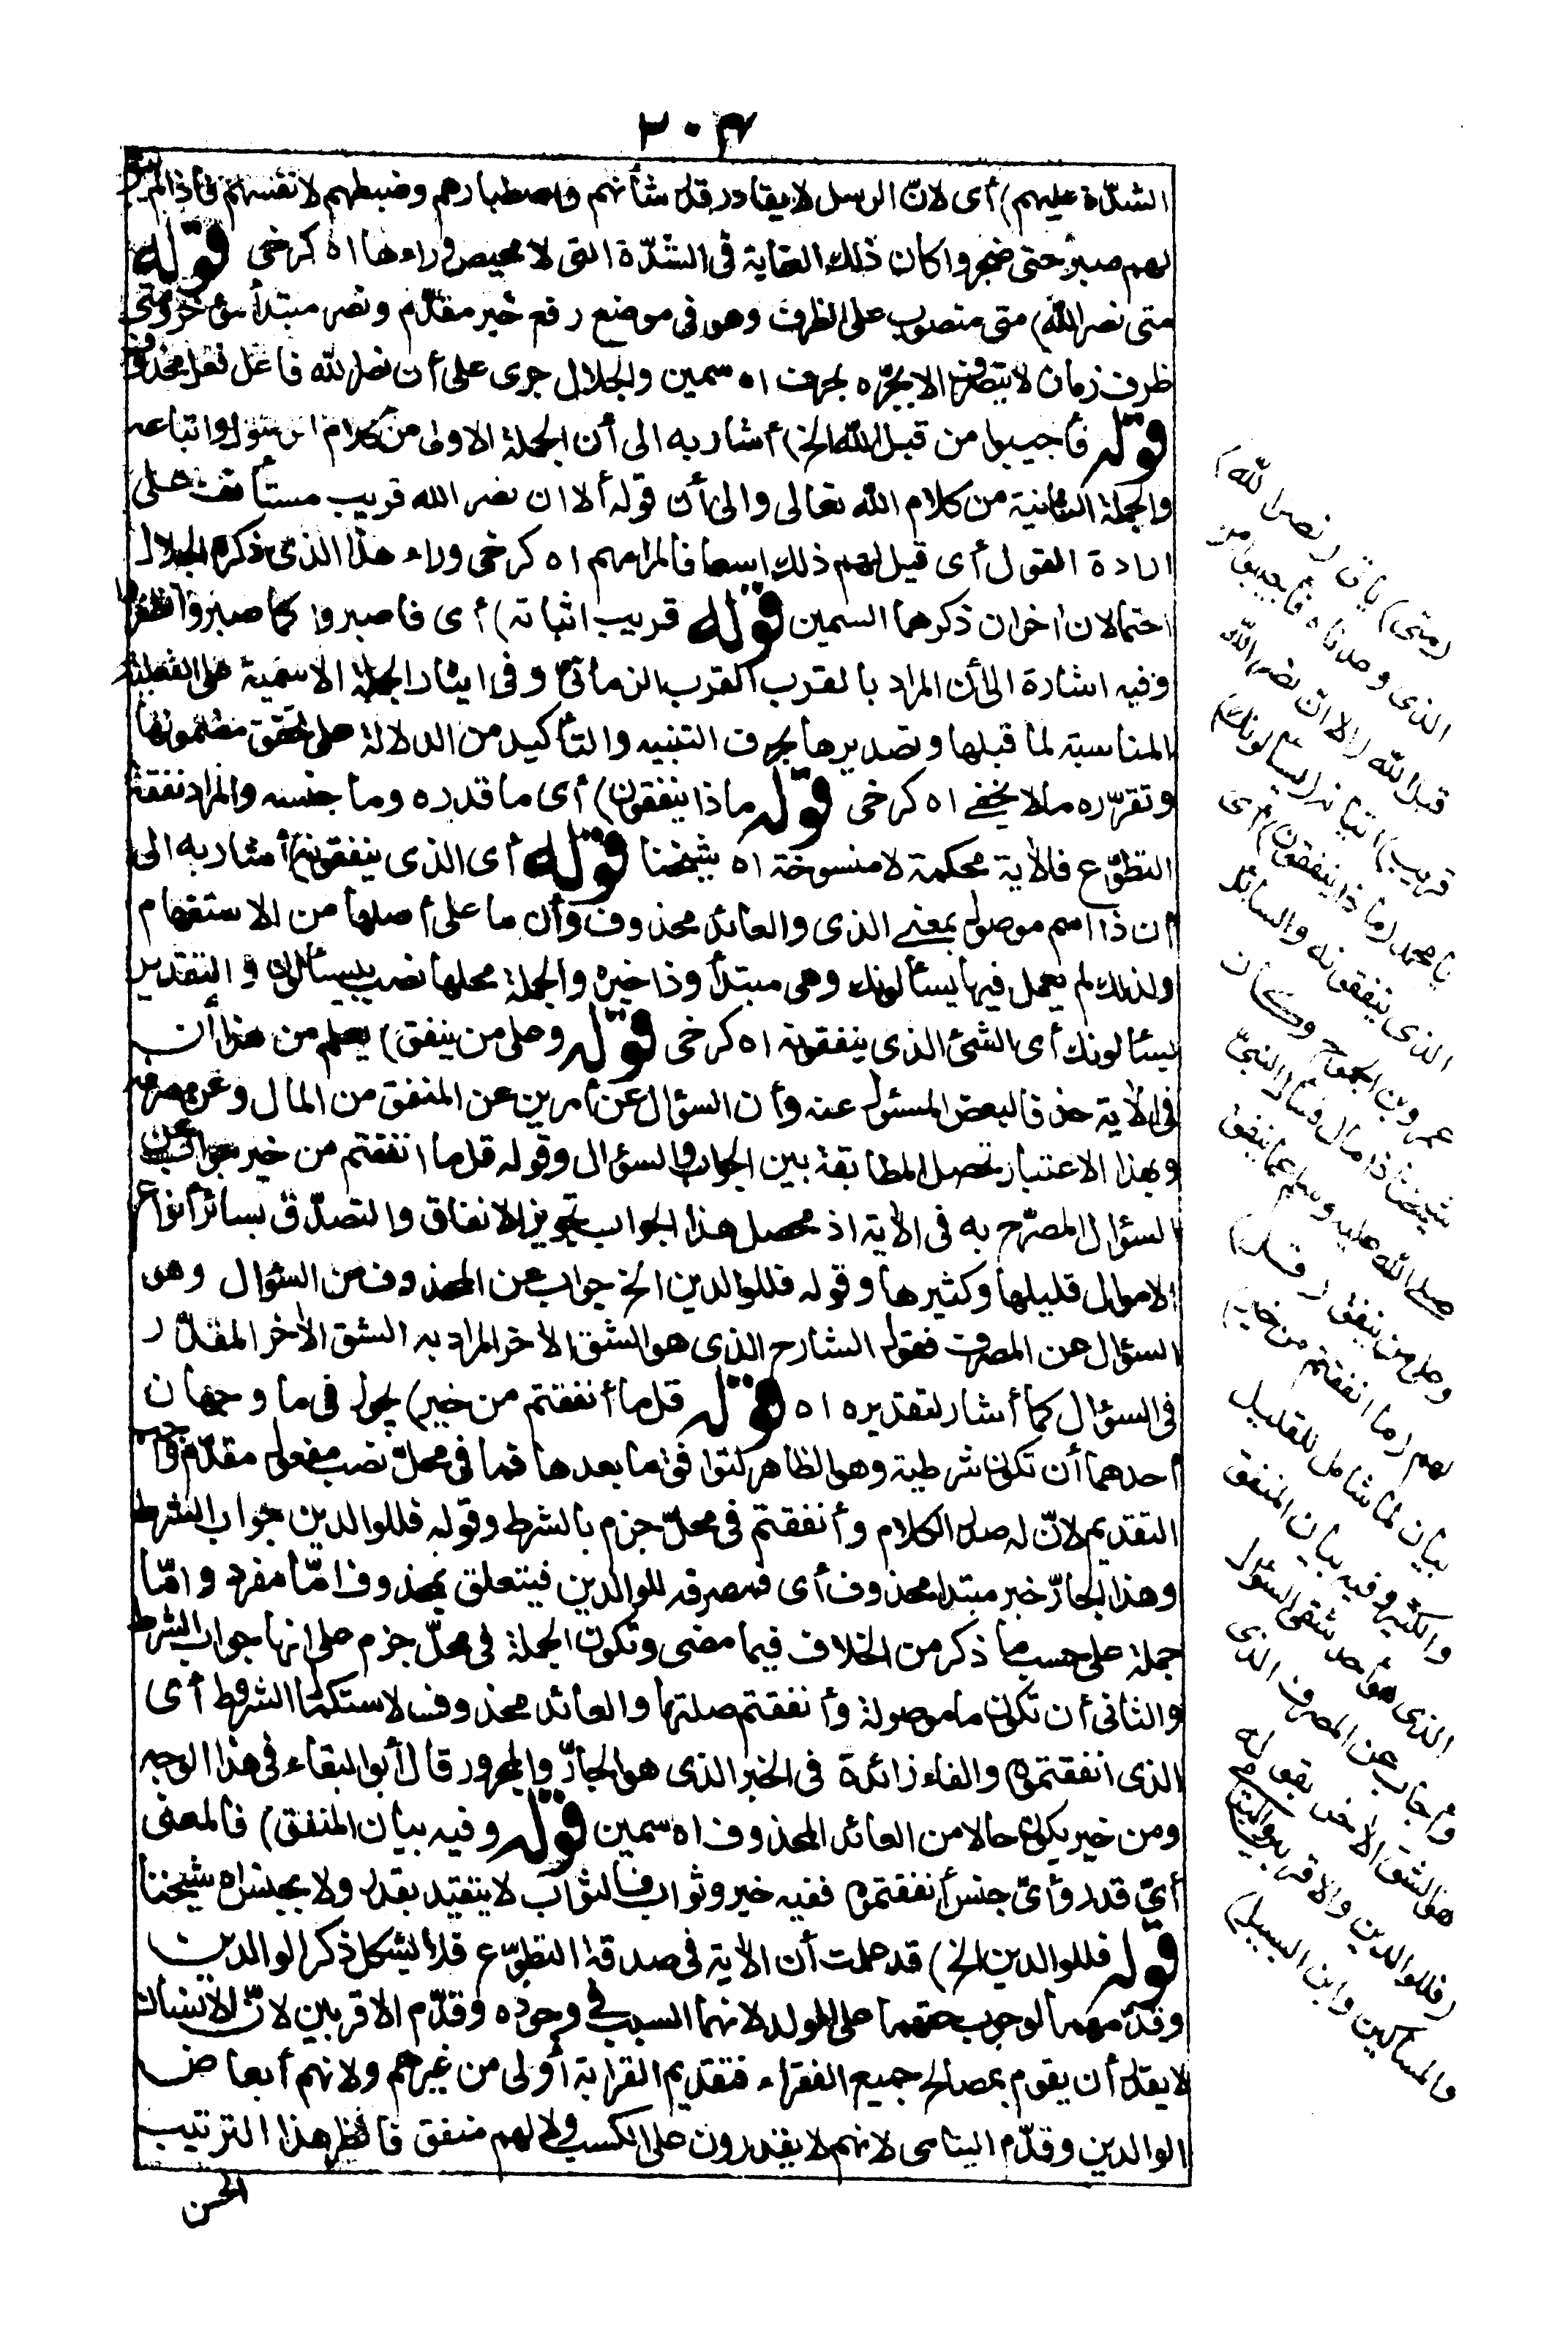 ٢٠٣
الشدّة عليهم) أى لانّ الرسل لا يقادر قدر شأنهم واصطبارهم وضبطهم لانفسهم فاذا لم يبق
لهم صبر حتى ضجروا كان ذلك الغاية فى الشدّة التى لا محيص وراءها اه كرخى قوله
متى نصر الله) متى منصوب على الظرف وهو فى موضع رفع خبر مقدّم ونصر مبتدأ مؤخر ومتى
ظرف زمان لا يتصرف الا بجرّه بحرف اه سمين والجلال جرى على أن نصر الله فاعل فعل محذوف
قوله فأجيبوا من قبل الله الخ) أشار به الى أن الجملة الاولى من كلام الرسول واتباعه
والجملة الثانية من كلام الله تعالى والى أن قوله ألا ان نصر الله قريب مستأنف على
ارادة القول أى قيل لهم ذلك اسعافا لمرامهم اه كرخى وراء هذا الذى ذكره الجلال
احتمالان اخران ذكرهما السمين قوله قريب اتيانه) أى فاصبروا كما صبروا تظفروا
وفيه اشارة الى أن المراد بالقرب القرب الزمانىّ وفى ايثار الجملة الاسمية على الفعلية
المناسبة لما قبلها وتصديرها بحرف التنبيه والتأكيد من الدلالة على تحقق مضمونها
وتقرّره مالا يخفى اه كرخى قوله ماذا ينفقون) أى ما قدره وما جنسه والمراد نفقة
التطوّع فالآية محكمة لا منسوخة اه شيخنا قوله أى الذى ينفقونه) أشار به الى
أن ذا اسم موصول بمعنى الذى والعائد محذوف وأن ما على أصلها من الاستفهام
ولذلك لم يعمل فيها يسألونك وهى مبتدأ وذا خبره والجملة محلها نصب بيسألون والتقدير
يسألونك أى الشئ الذى ينفقونه اه كرخى قوله وعلى من ينفق) يعلم من هذا أن
فى الآية حذفا لبعض المسئول عنه وأن السؤال عن أمرين عن المنفق من المال وعن مصرفه
وبهذا الاعتبار تحصل المطابقة بين الجواب والسؤال وقوله قل ما انفقتم من خير جواب عن
السؤال المصرّح به فى الآية اذ محصل هذا الجواب تجويز الانفاق والتصدّق بسائر أنواع
الاموال قليلها وكثيرها وقوله فللوالدين الخ جواب عن المحذوف من السؤال وهو
السؤال عن المصرف فقول الشارح الذى هو الشق الآخر المراد به الشق الآخر المقدّر
فى السؤال كما أشار لتقديره اه قوله قل ما أنفقتم من خير) يجوز فى ما وجهان
أحدهما أن تكون شرطية وهو الظاهر لتوافق ما بعدها فما فى محلّ نصب مفعول مقدّم واجب
التقديم لانّ له صدر الكلام وأنفقتم فى محلّ جزم بالشرط وقوله فللوالدين جواب الشرط
وهذا الجارّ خبر مبتدا محذوف أى فمصرفه للوالدين فيتعلق بمحذوف امّا مفرد وامّا
جملة على حسب ما ذكر من الخلاف فيما مضى وتكون الجملة فى محلّ جزم على انها جواب الشرط
والثانى أن تكون ما موصولة وأنفقتم صلتها والعائد محذوف لاستكمال الشروط أى
الذى انفقتموه والفاء زائدة فى الخبر الذى هو الجارّ والمجرور قال أبو البقاء فى هذا الوجه
ومن خير يكون حالا من العائد المحذوف اه سمين قوله وفيه بيان المنفق) فالمعنى
أىّ قدر وأىّ جنس أنفقتموه ففيه خير وثواب فالثواب لا يتقيد بقدر ولا بجنس اه شيخنا
قوله فللوالدين الخ) قد علمت أن الآية فى صدقة التطوّع فلا يشكل ذكر الوالدين
وقدّمهما لوجوب حقهما على الولد لانهما السبب فى وجوده وقدّم الاقربين لانّ الانسان
لا يقدر أن يقوم بمصالح جميع الفقراء فتقديم القرابة أولى من غيرهم ولانهم أبعاض
الوالدين وقدّم اليتامى لانهم لا يقدرون على الكسب ولا لهم منفق فانظر هذا الترتيب
الحسن
(متى) يأتى (نصر الله)
الذى وعدناه فأجيبوا من
قبل الله (ألا ان نصر الله
قريب) اتيانه (يسألونك)
يا محمد (ماذا ينفقون) أى
الذى ينفقونه والسائل
عمرو بن الجموح وكان
شيخا ذا مال فسأل النبىّ
صلى الله عليه وسلم عما ينفق
وعلى من ينفق (قل)
لهم (ما انفقتم من خير)
بيان لما شامل للقليل
والكثير وفيه بيان المنفق
الذى هو أحد شقى السؤال
وأجاب عن المصرف الذى
هو الشق الآخر بقوله
(فللوالدين والاقربين واليتامى
والمساكين وابن السبيل)